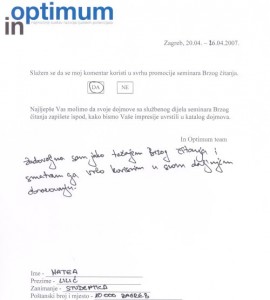 in optimum
Zagreb, 20.04. – 26.04.2007.
Slažem se da se moj komentar koristi u svrhu promocije seminara Brzog čitanja.
DA NE
Najljepše Vas molimo da svoje dojmove sa službenog dijela seminara Brzog
čitanja zapišete ispod, kako bismo Vaše impresije uvrstili u katalog dojmova.
In Optimum team
Zadovoljna sam jako tečajem Brzog čitanja i
smatram ga vrlo korisnim u svom daljnjem
obrazovanju.
Ime - MATEA
Prezime -
Zanimanje - STUDENTICA
Poštanski broj i mjesto - 10 000 ZAGREB